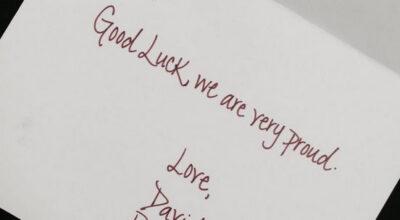 Good Luck, we are very proud.
Love,
David